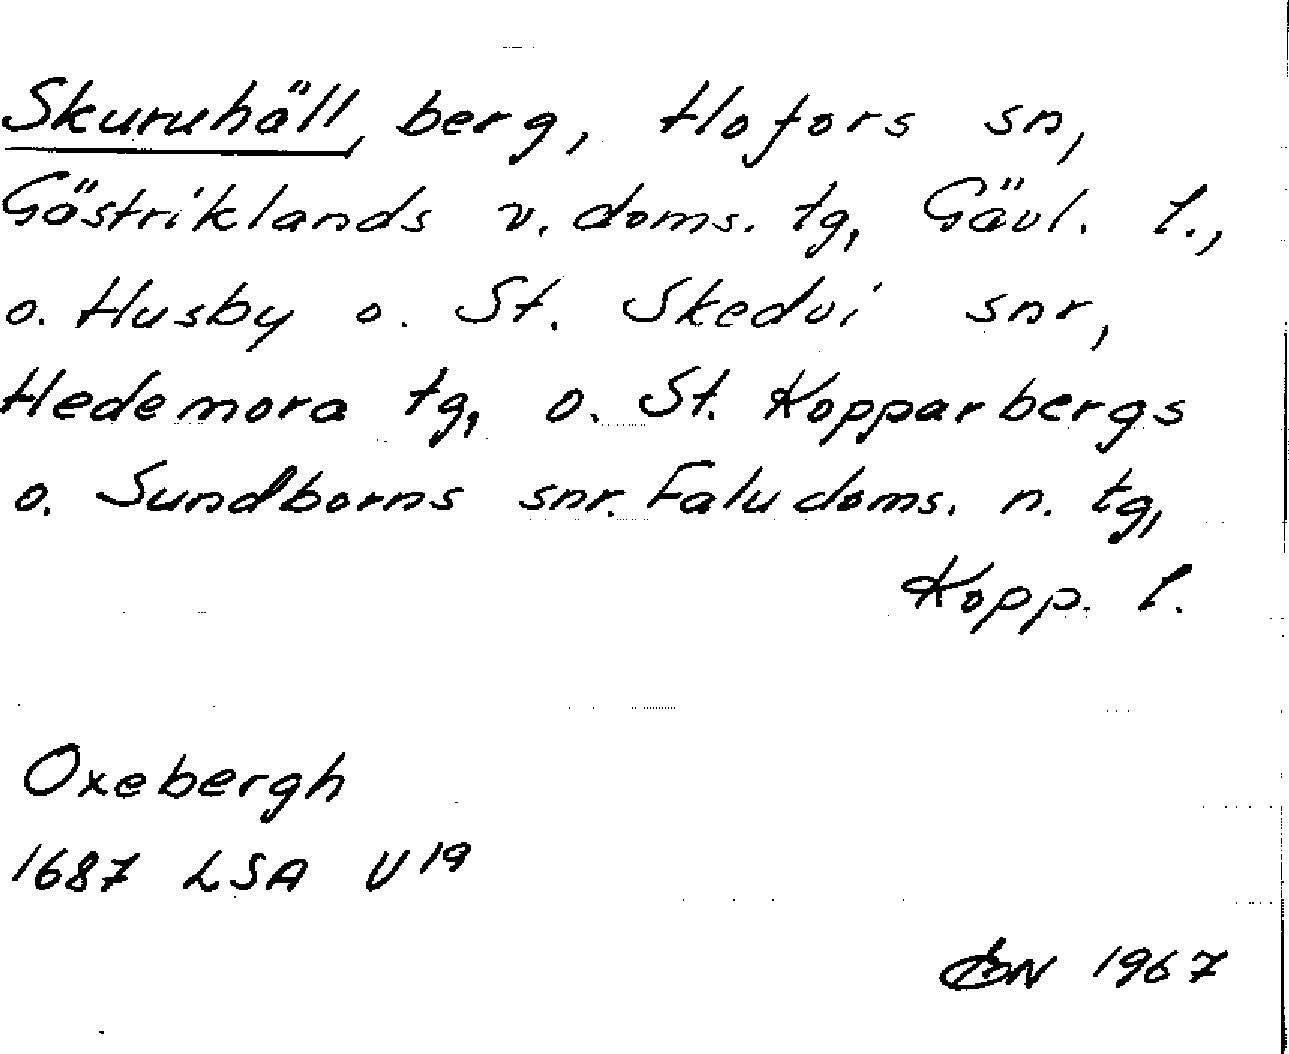 Skuruhäll, berg, Hofors sn,
Gästriklands v. doms. tg, Gävl. l.,
o. Husby o. St. Skedvi snr,
Hedemora tg, o. St. Kopparbergs
o. Sundborns snr. Falu doms. n. tg,
Kopp. l.
Oxebergh
1687 LSA U 19
1967